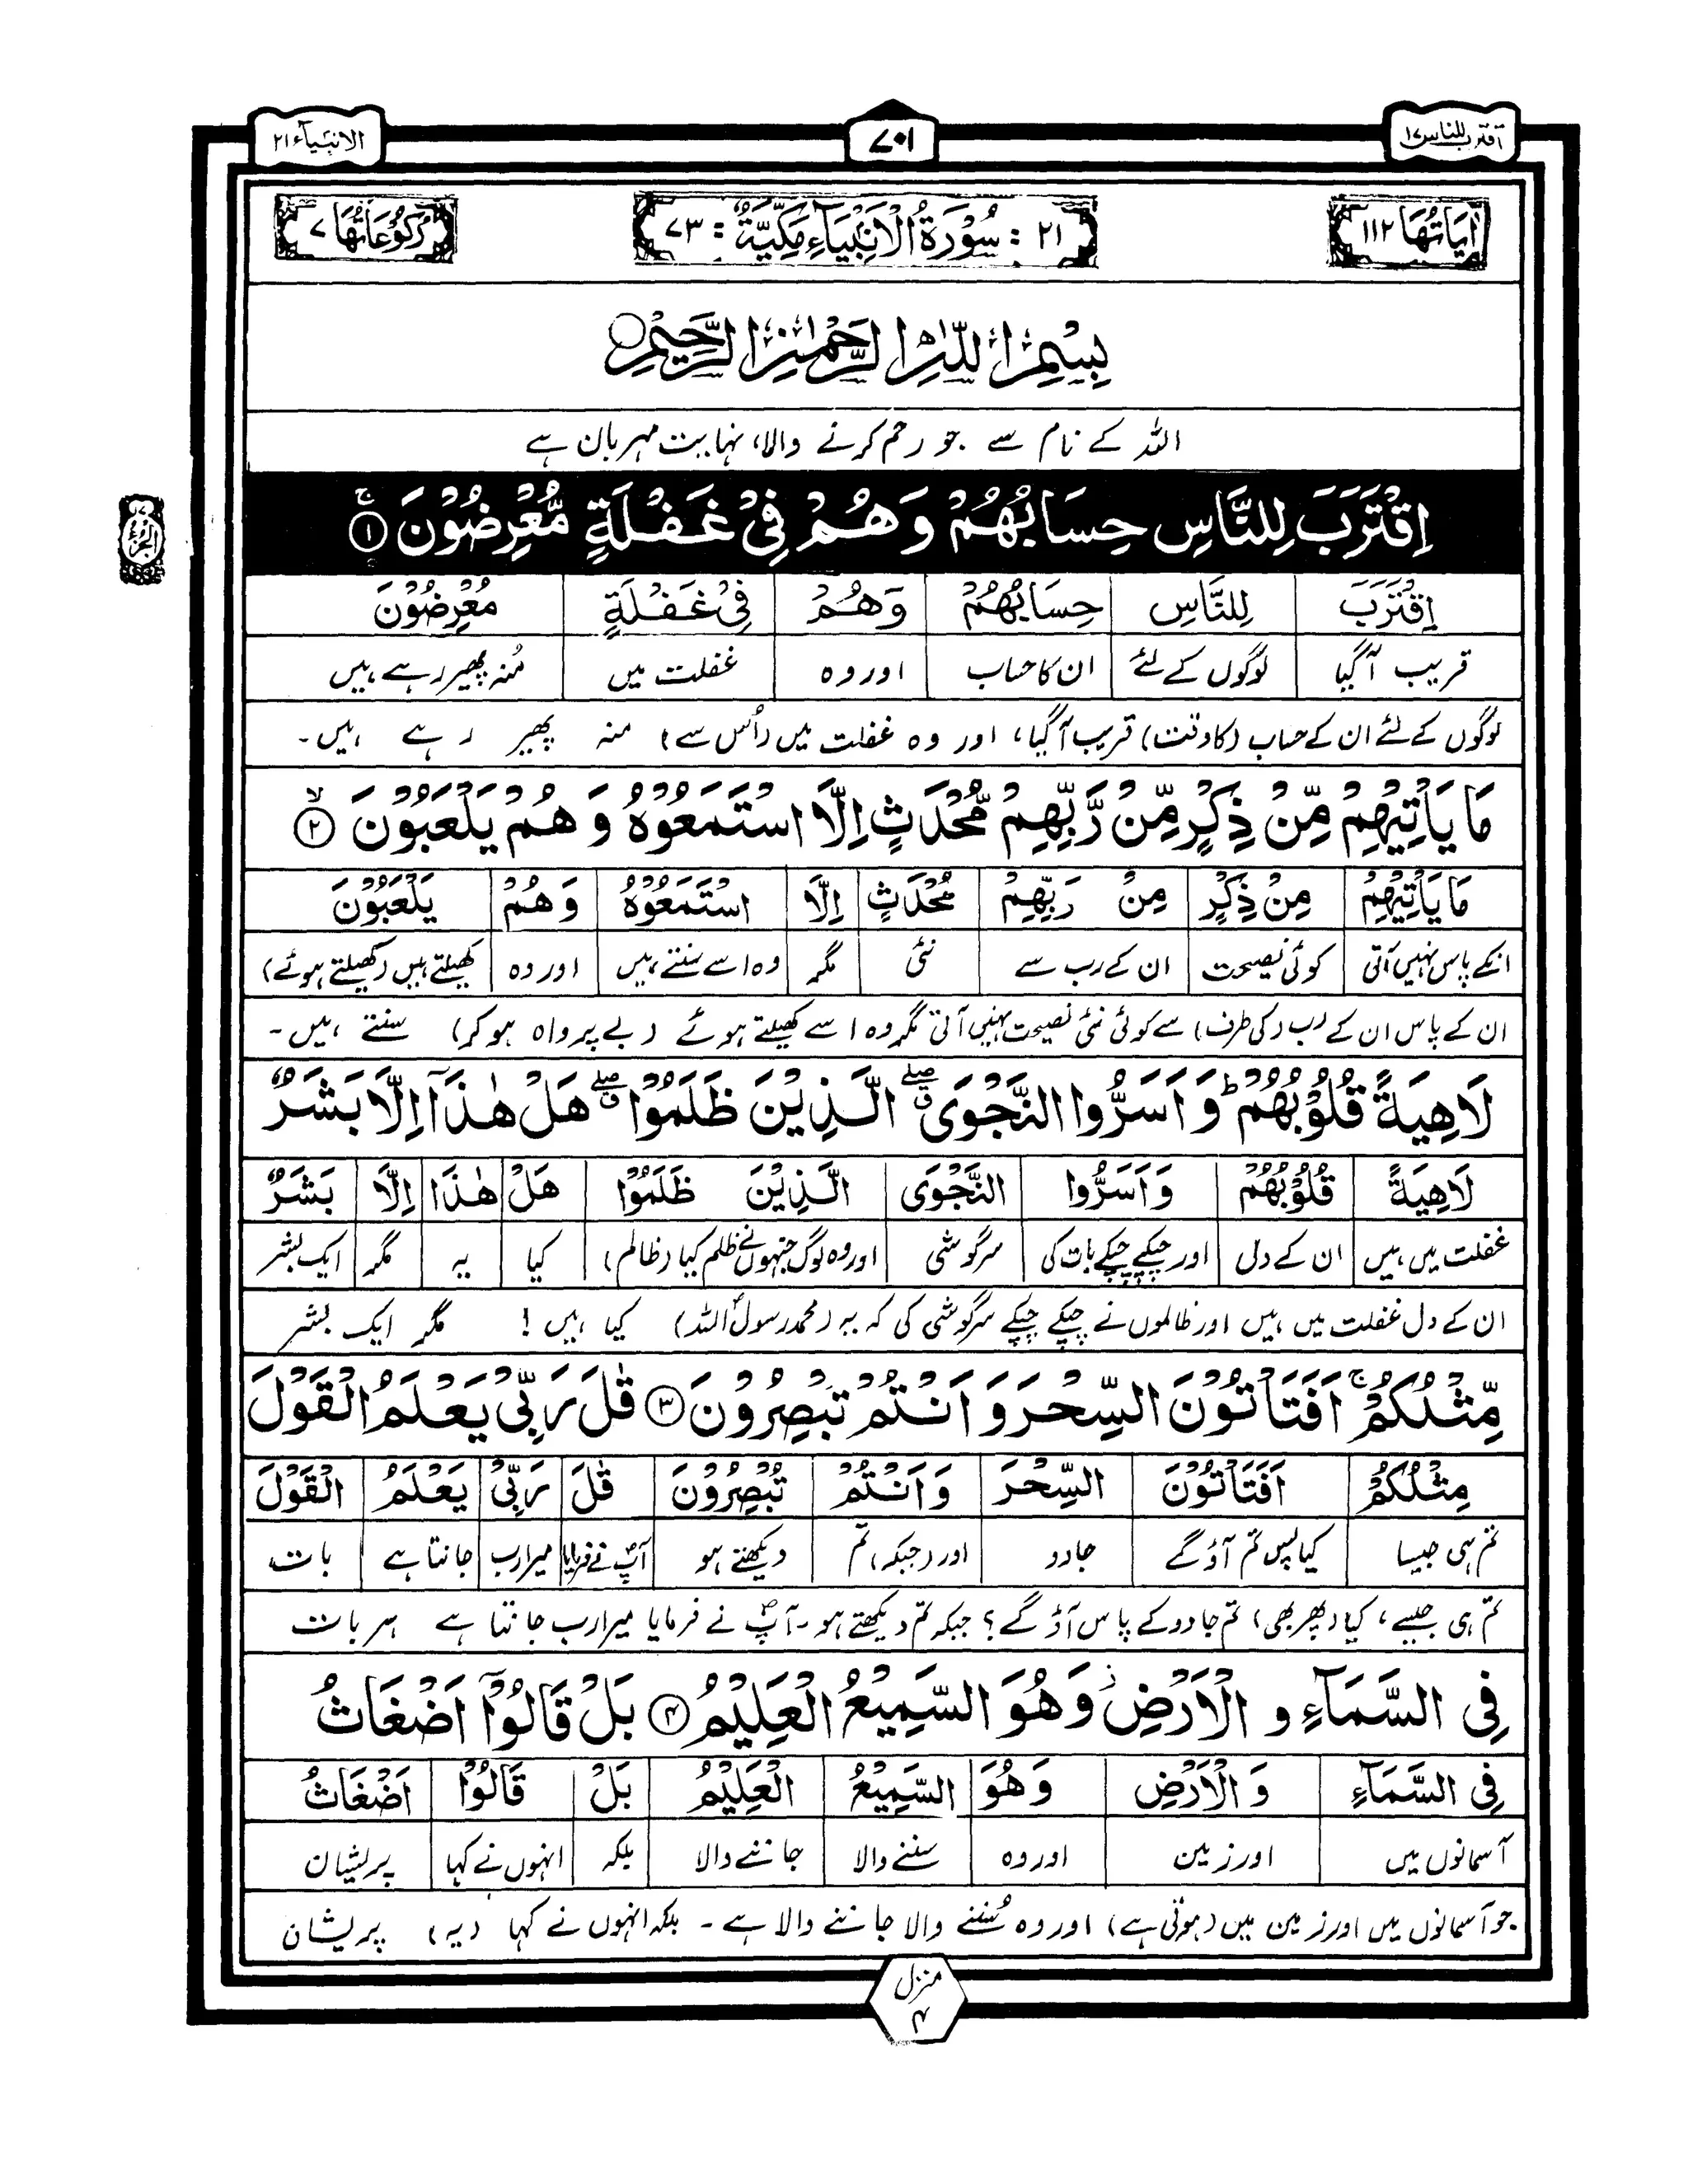 اقترب للناس ۱۷
۷۰۱
الانبیاء ۲۱
اٰیَاتُهَا ۱۱۲
۲۱ : سُوْرَةُ الْاَنْۢبِیَآءِ مَكِّیَّةٌ : ۷۳
رُكُوْعَاتُهَا ۷
بِسْمِ اللّٰهِ الرَّحْمٰنِ الرَّحِیْمِ
اللہ کے نام سے جو رحم کرنے والا، نہایت مہربان ہے
اِقْتَرَبَ لِلنَّاسِ حِسَابُهُمْ وَهُمْ فِیْ غَفْلَةٍ مُّعْرِضُوْنَ ۚ ﴿۱﴾
الجزء
اِقْتَرَبَ لِلنَّاسِ حِسَابُهُمْ وَهُمْ فِیْ غَفْلَةٍ مُعْرِضُوْنَ
قریب آگیا لوگوں کے لئے ان کا حساب اور وہ غفلت میں مُنہ پھیر رہے ہیں
لوگوں کے لئے ان کے حساب (کا وقت) قریب آگیا، اور وہ غفلت میں (اُس سے) منہ پھیر رہے ہیں۔
مَا یَاْتِیْهِمْ مِّنْ ذِكْرٍ مِّنْ رَّبِّهِمْ مُّحْدَثٍ اِلَّا اسْتَمَعُوْهُ وَهُمْ یَلْعَبُوْنَ ۙ ﴿۲﴾
مَا یَاْتِیْهِمْ مِنْ ذِكْرٍ مِنْ رَبِّهِمْ مُحْدَثٍ اِلَّا اسْتَمَعُوْهُ وَهُمْ یَلْعَبُوْنَ
انکے پاس نہیں آتی کوئی نصیحت ان کے رب سے نئی مگر وہ اسے سنتے ہیں اور وہ کھیلتے ہیں (کھیلتے ہوئے)
ان کے پاس ان کے رب (کی طرف) سے کوئی نئی نصیحت نہیں آتی مگر وہ اسے کھیلتے ہوئے (بے پرواہ ہو کر) سنتے ہیں۔
لَاهِیَةً قُلُوْبُهُمْ ؕ وَاَسَرُّوا النَّجْوَی ۖ الَّذِیْنَ ظَلَمُوْا ۖ هَلْ هٰذَاۤ اِلَّا بَشَرٌ
لَاهِیَةً قُلُوْبُهُمْ وَاَسَرُّوا النَّجْوَی الَّذِیْنَ ظَلَمُوْا هَلْ هٰذَا اِلَّا بَشَرٌ
غفلت میں ہیں ان کے دل اور چپکے چپکے بات کی سرگوشی اور وہ لوگ جنہوں نے ظلم کیا (ظالم) کیا یہ مگر ایک بشر
ان کے دل غفلت میں ہیں اور ظالموں نے چپکے چپکے سرگوشی کی کہ یہ (محمد رسولؐ اللہ) کیا ہیں! مگر ایک بشر
مِّثْلُكُمْ ۚ اَفَتَاْتُوْنَ السِّحْرَ وَاَنْتُمْ تُبْصِرُوْنَ ﴿۳﴾ قٰلَ رَبِّیْ یَعْلَمُ الْقَوْلَ
مِثْلُكُمْ اَفَتَاْتُوْنَ السِّحْرَ وَاَنْتُمْ تُبْصِرُوْنَ قٰلَ رَبِّیْ یَعْلَمُ الْقَوْلَ
تم ہی جیسا کیا پس تم آؤ گے جادو اور (جبکہ) تم دیکھتے ہو آپؐ نے فرمایا میرا رب جانتا ہے بات
تم ہی جیسے، کیا (پھر بھی) تم جادو کے پاس آؤ گے؟ جبکہ تم دیکھتے ہو۔ آپؐ نے فرمایا میرا رب جانتا ہے ہر بات
فِی السَّمَآءِ وَ الْاَرْضِ ؗ وَهُوَ السَّمِیْعُ الْعَلِیْمُ ﴿۴﴾ بَلْ قَالُوْۤا اَضْغَاثُ
فِی السَّمَآءِ وَ الْاَرْضِ وَهُوَ السَّمِیْعُ الْعَلِیْمُ بَلْ قَالُوْا اَضْغَاثُ
آسمانوں میں اور زمین اور وہ سننے والا جاننے والا بلکہ انہوں نے کہا پریشان
جو آسمانوں میں اور زمین میں (ہوتی ہے) اور وہ سُننے والا جاننے والا ہے۔ بلکہ انہوں نے کہا (یہ) پریشان
منزل
۴